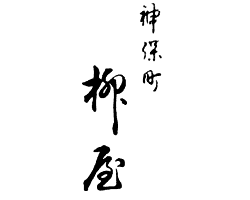 神保町
柳屋